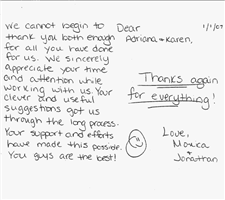 We cannot begin to
thank you both enough
for all you have done
for us. We sincerely
appreciate your time
and attention while
working with us. Your
clever and useful
suggestions got us
through the long process.
Your support and efforts
have made this possible.
You guys are the best!
Dear
Adriana & Karen,
1/1/07
Thanks again
for everything!
Love,
Monica
&
Jonathan